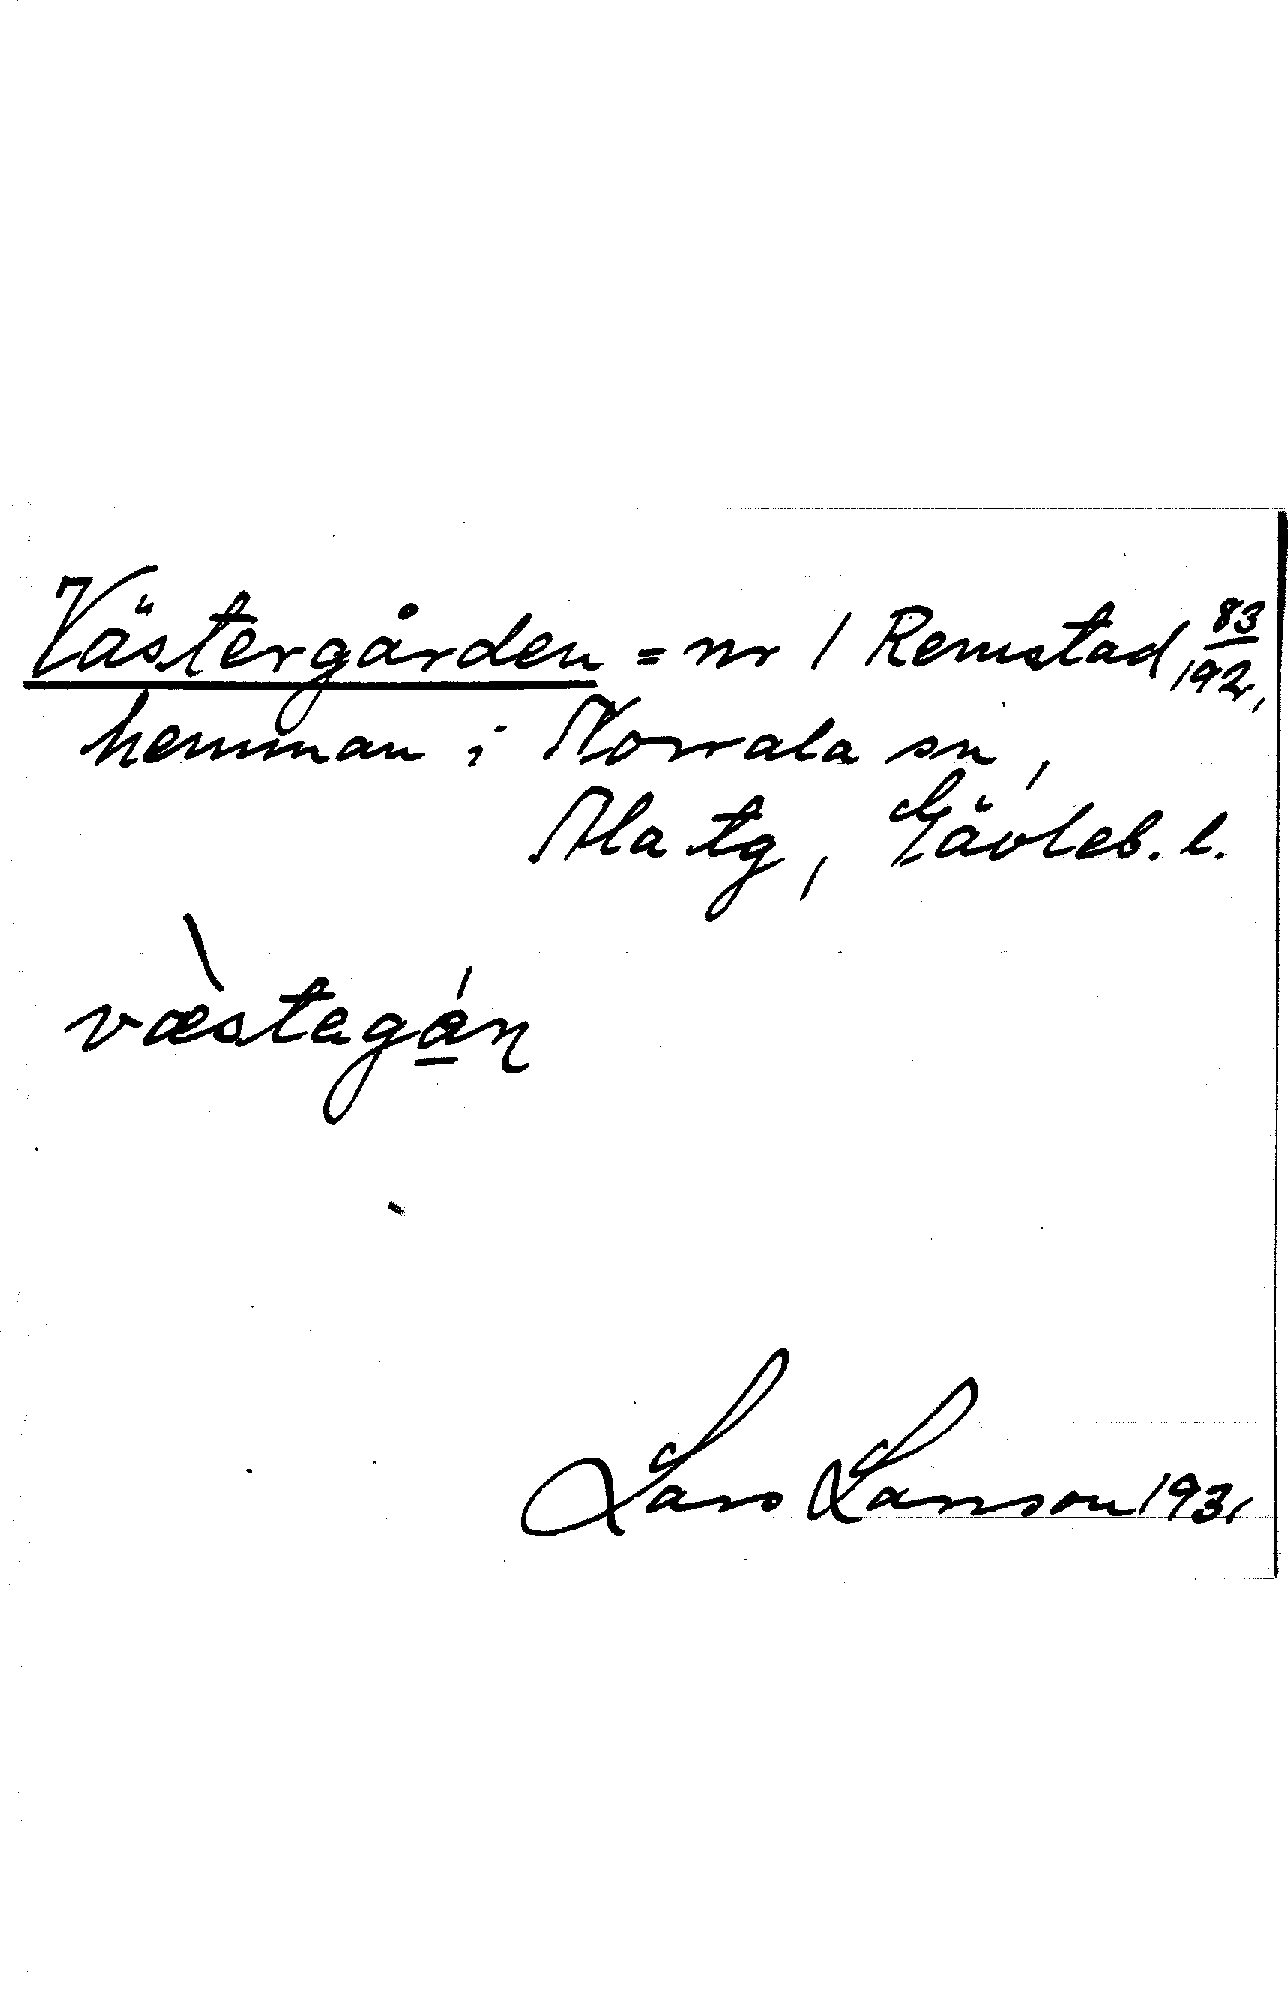 Västergården = nr 1 Remstad 83/192,
hemman i Norrala sn,
Ala tg, Gävleb. l.
væ̀stagán
Lars Larsson 1931